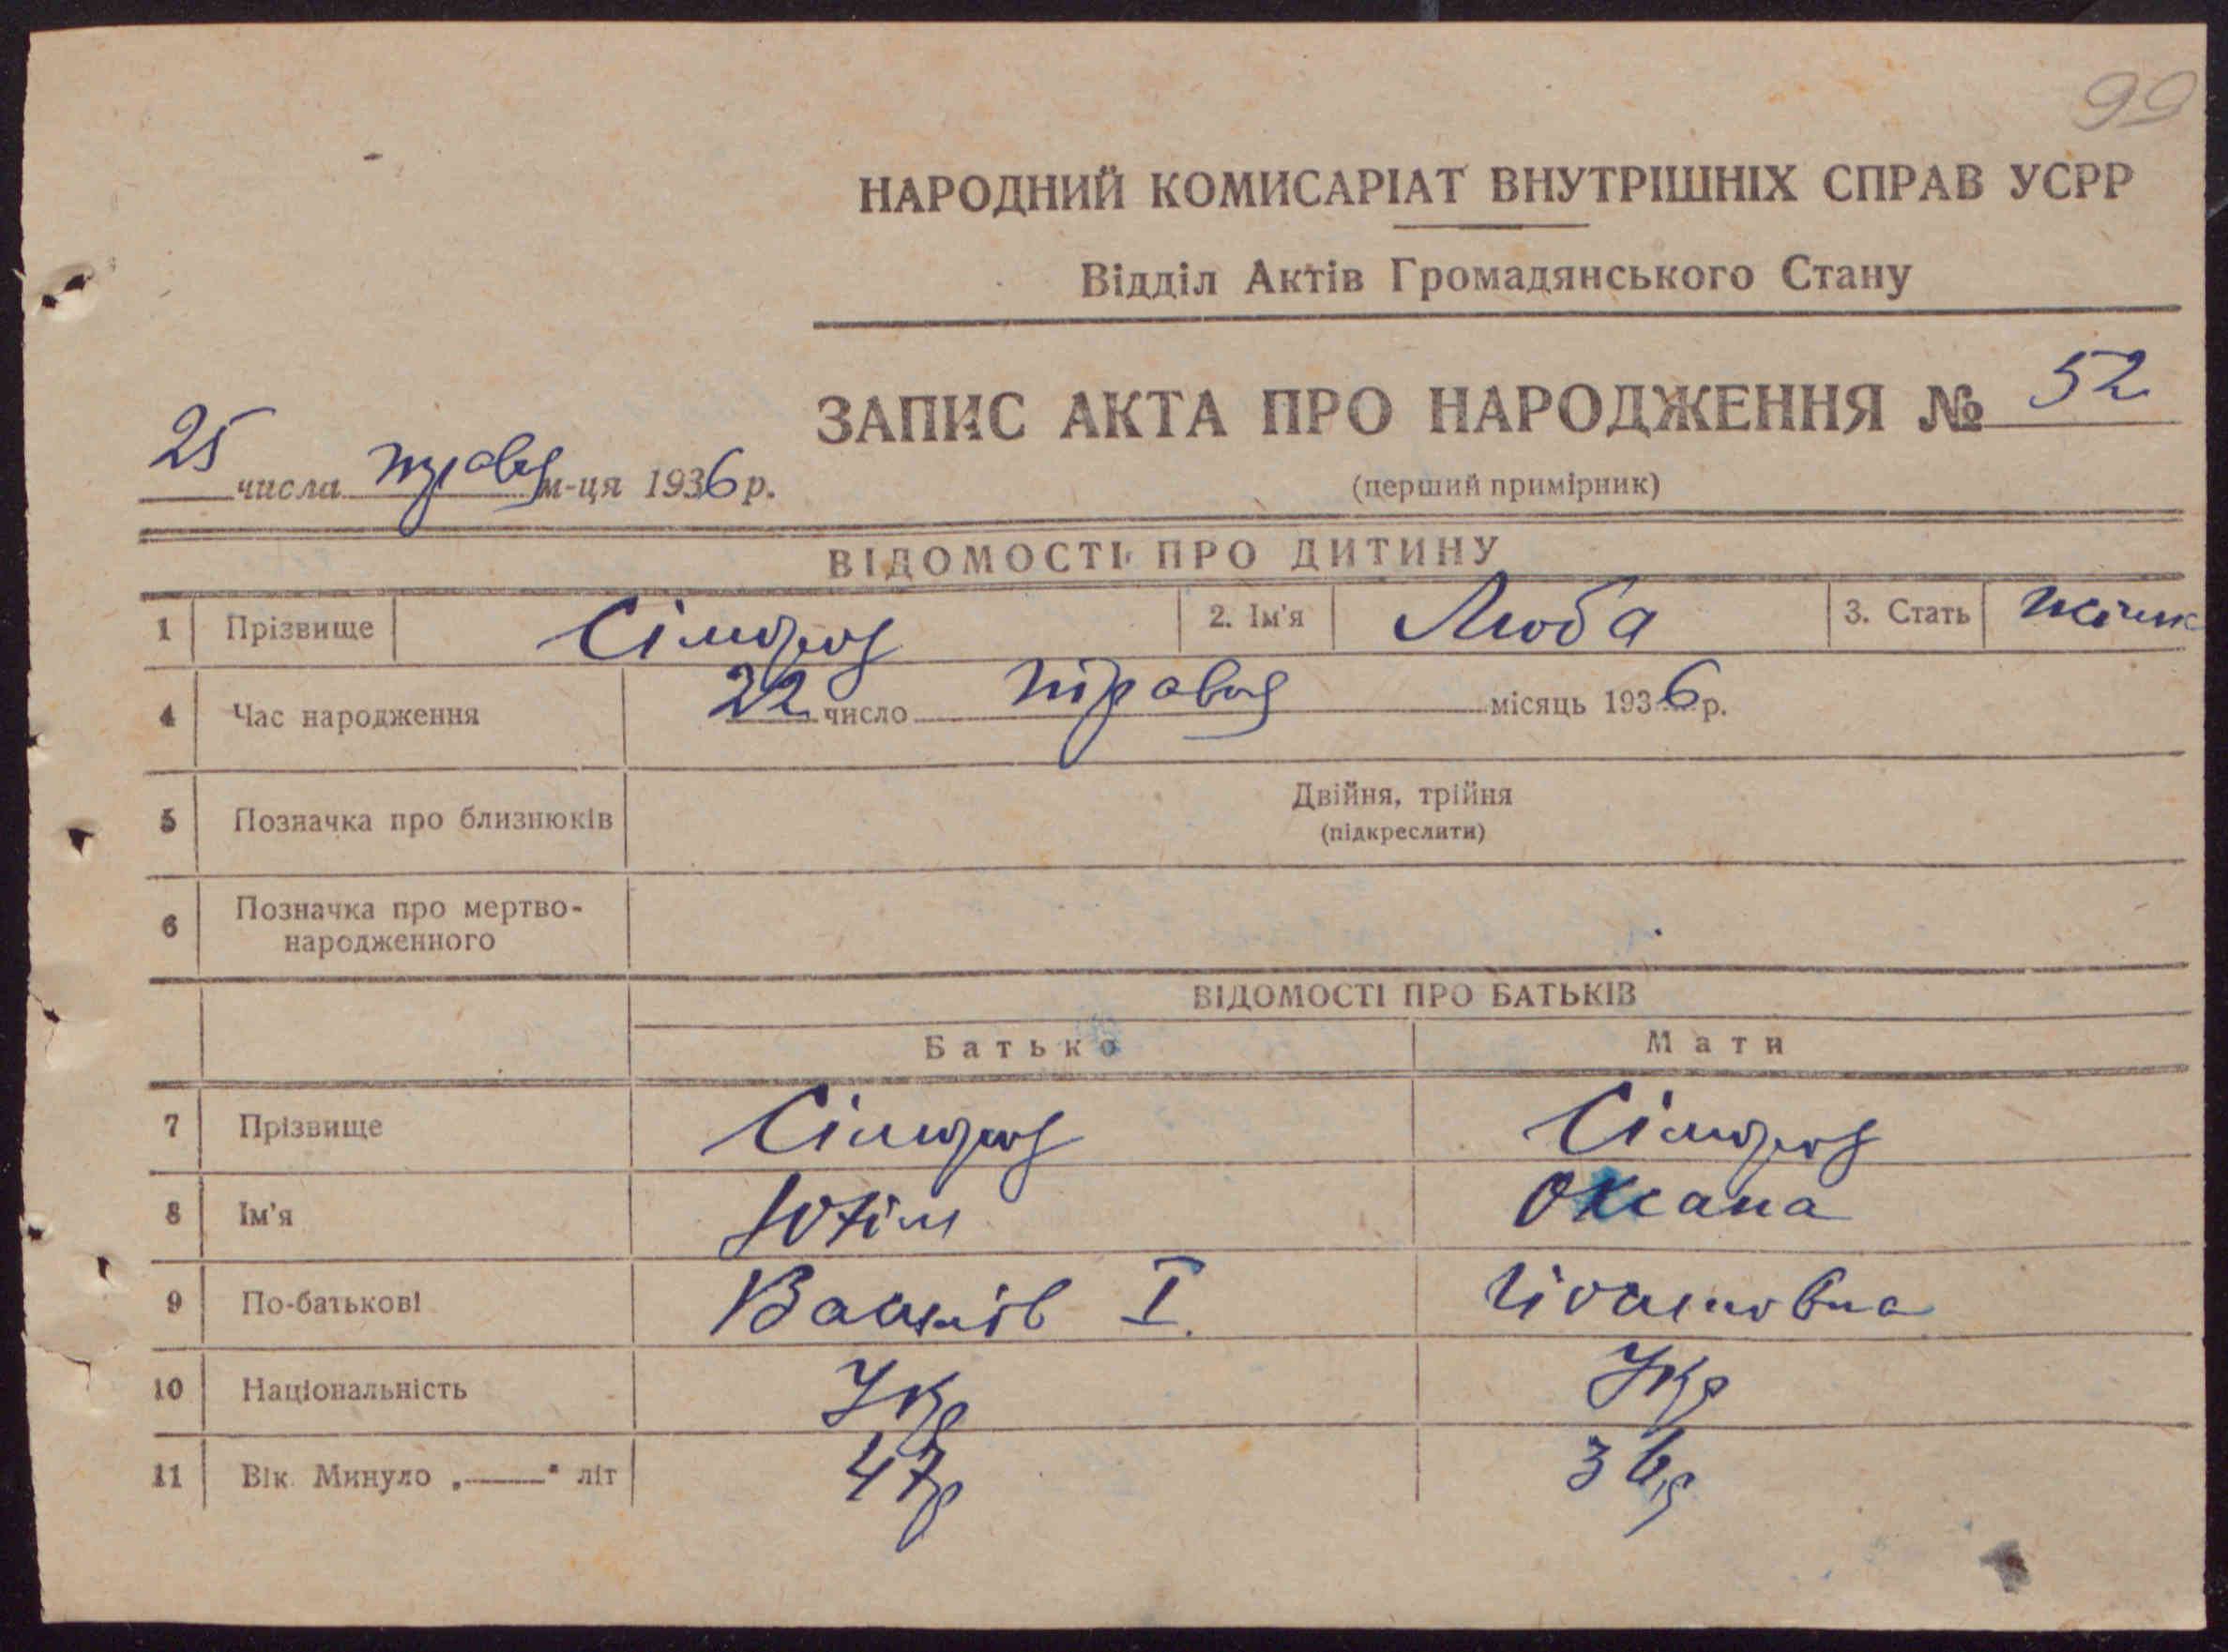 99
НАРОДНИЙ КОМИСАРІАТ ВНУТРІШНІХ СПРАВ УСРР
Відділ Актів Громадянського Стану
ЗАПИС АКТА ПРО НАРОДЖЕННЯ № 52
25 числа травня м-ця 1936 р.
(перший примірник)
ВІДОМОСТІ ПРО ДИТИНУ
1 Прізвище 2. Ім'я Люба 3. Стать жіноч
4 Час народження 22 число травня місяць 1936 р.
5 Позначка про близнюків Двійня, трійня
(підкреслити)
6 Позначка про мертво-
народженного
ВІДОМОСТІ ПРО БАТЬКІВ
Батько Мати
7 Прізвище
8 Ім'я Юхім Оксана
9 По-батькові І. Івановна
10 Національність Укр Укр
11 Вік Минуло „——" літ 47р 36р